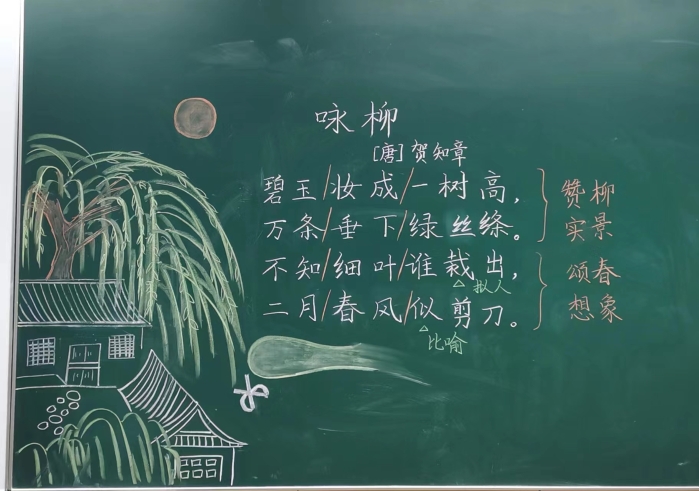 咏柳
[唐]贺知章
碧玉/妆成/一树高，
万条/垂下/绿丝绦。
赞柳
实景
不知/细叶/谁裁出，
拟人
二月/春风/似剪刀。
比喻
颂春
想象